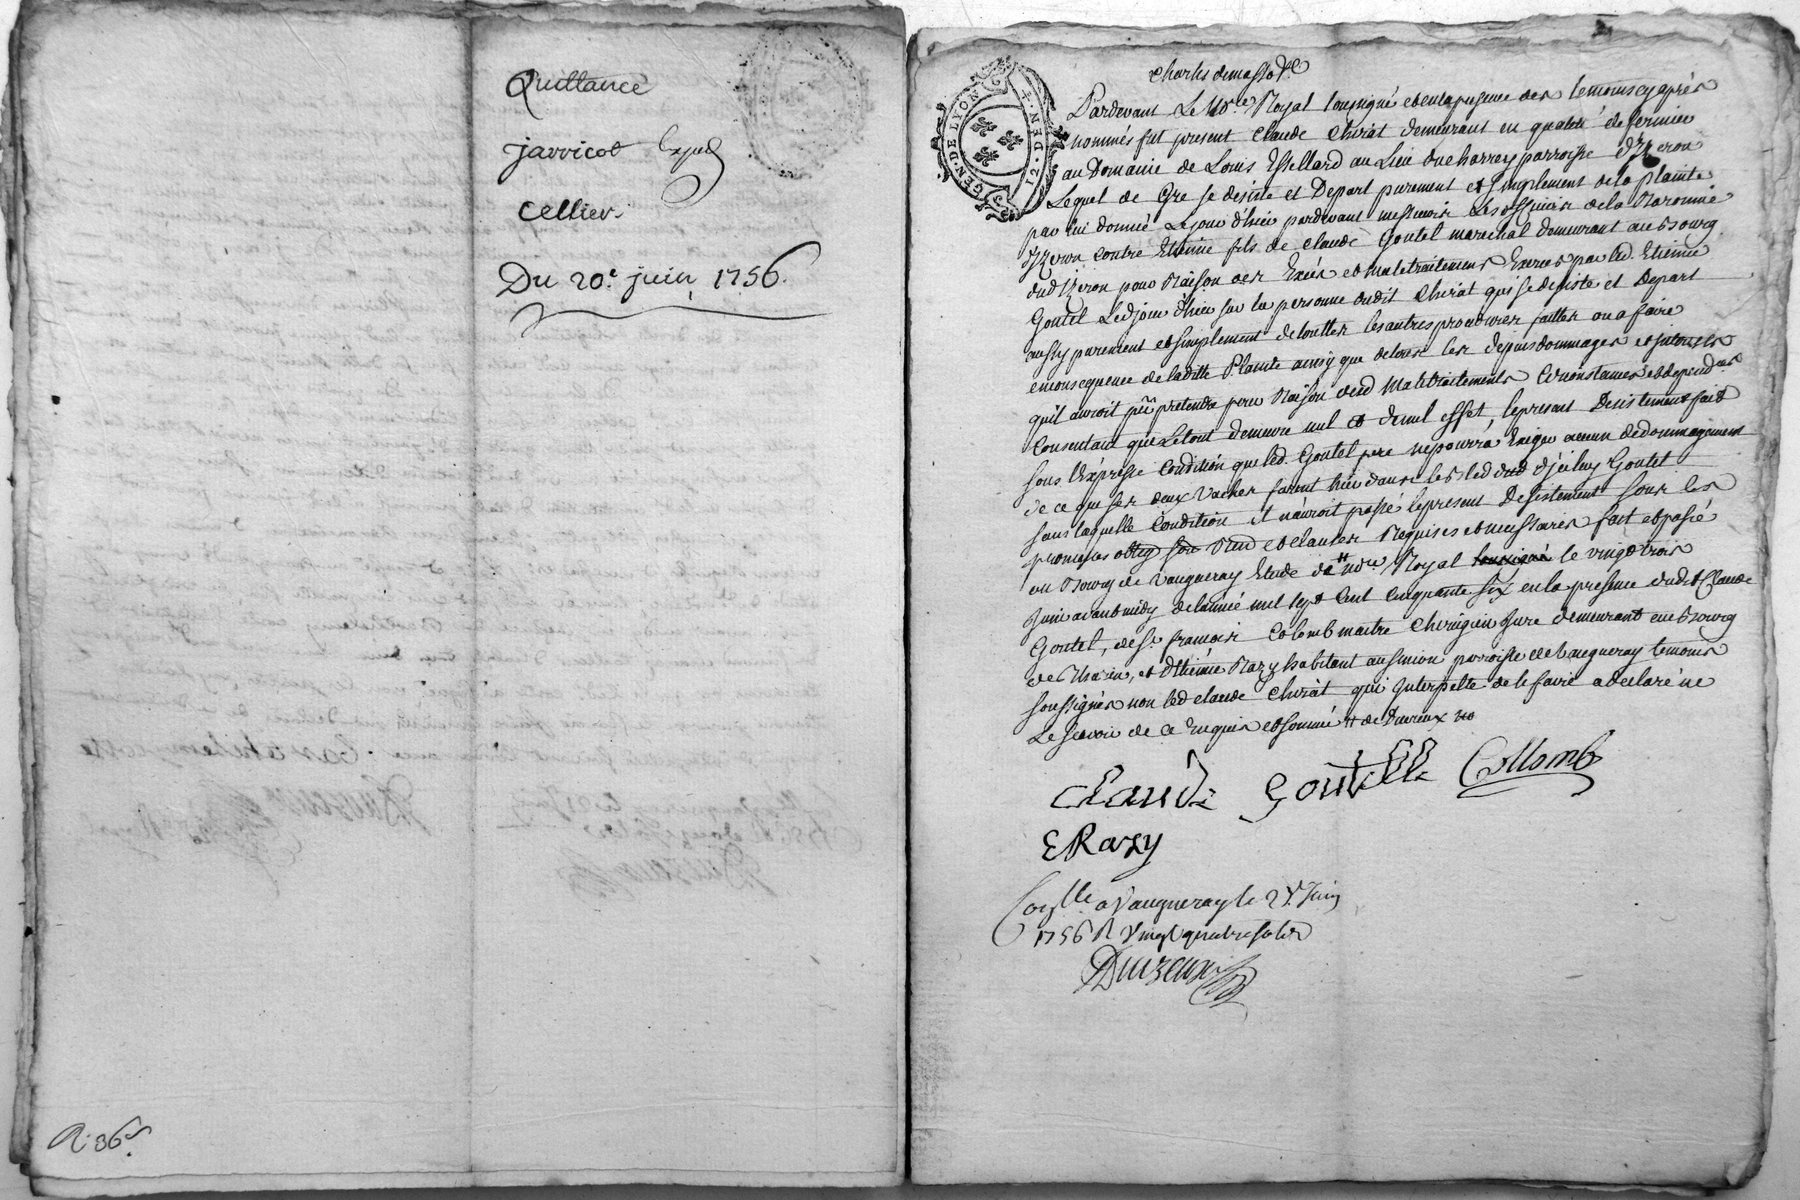 Quittance
jarricot
Cellier.
Du 20.e juin 1756.
R: 36s
GEN. DE LYON
12. DEN.
Pardevant Le No.re Royal soussigné et en la presence des temoins cy après
nommés fut present Claude Chirat demeurant en qualité de fermier
au Domaine de Louis Essellard au Lieu du charrey parroisse d'Yzeron
Lequel de Gre se desiste et Depart purement et simplement de la plainte
par lui donnée Le jour d'hier pardevant messieurs Les officiers de la Baronnie
d'yzeron contre Etienne fils de Claude Goutel marechal demeurant au Bourg
dud Yzeron pour Raison des Excés et maletraitemens Exercés par led. Etienne
Goutel Led jour d'hier sur la personne dudit Chirat qui se desiste et Depart
aussy purement et simplement de touttes les autres procedures faittes ou a faire
en consequence de laditte Plainte ainsy que de tous les depens dommages et interests
qu'il auroit pû pretendre pour Raison desd Maletraitements Circonstances et dependces
Consentant que Le tout demeure nul et de nul effet, le present Desistement fait
sous l'expresse Condition que led. Goutel pere ne pourra Exiger aucun dedommagement
de ce que ses deux Vaches furent hier dans le bled dud d'jceluy Goutel
sans laquelle Condition il n'auroit passé le present Desistement sous les
promesses oblig et clauses Requises et necessaires fait et passé
au Bourg de Vaugneray Etude de # no.re Royal soussigné le vingt trois
Juin avant midy de l'année mil sept Cent Cinquante six en la presence dudit Claude
Goutel, de Sr. francois Colomb maitre Chirugien Jure demeurant au Bourg
de Thurin, et d'Etienne Razy habitant au Simion parroisse de Vaugneray temoins
soussignés non led Claude Chirat qui Interpellé de le faire a declaré ne
Le scavoir de ce Enquis et sommé # de Duzeux no
Claude Goutelle Collomb
E Razy
Conlle a Vaugneray le 24. Juin
1756 R Vingt quatre sols
Duizeux